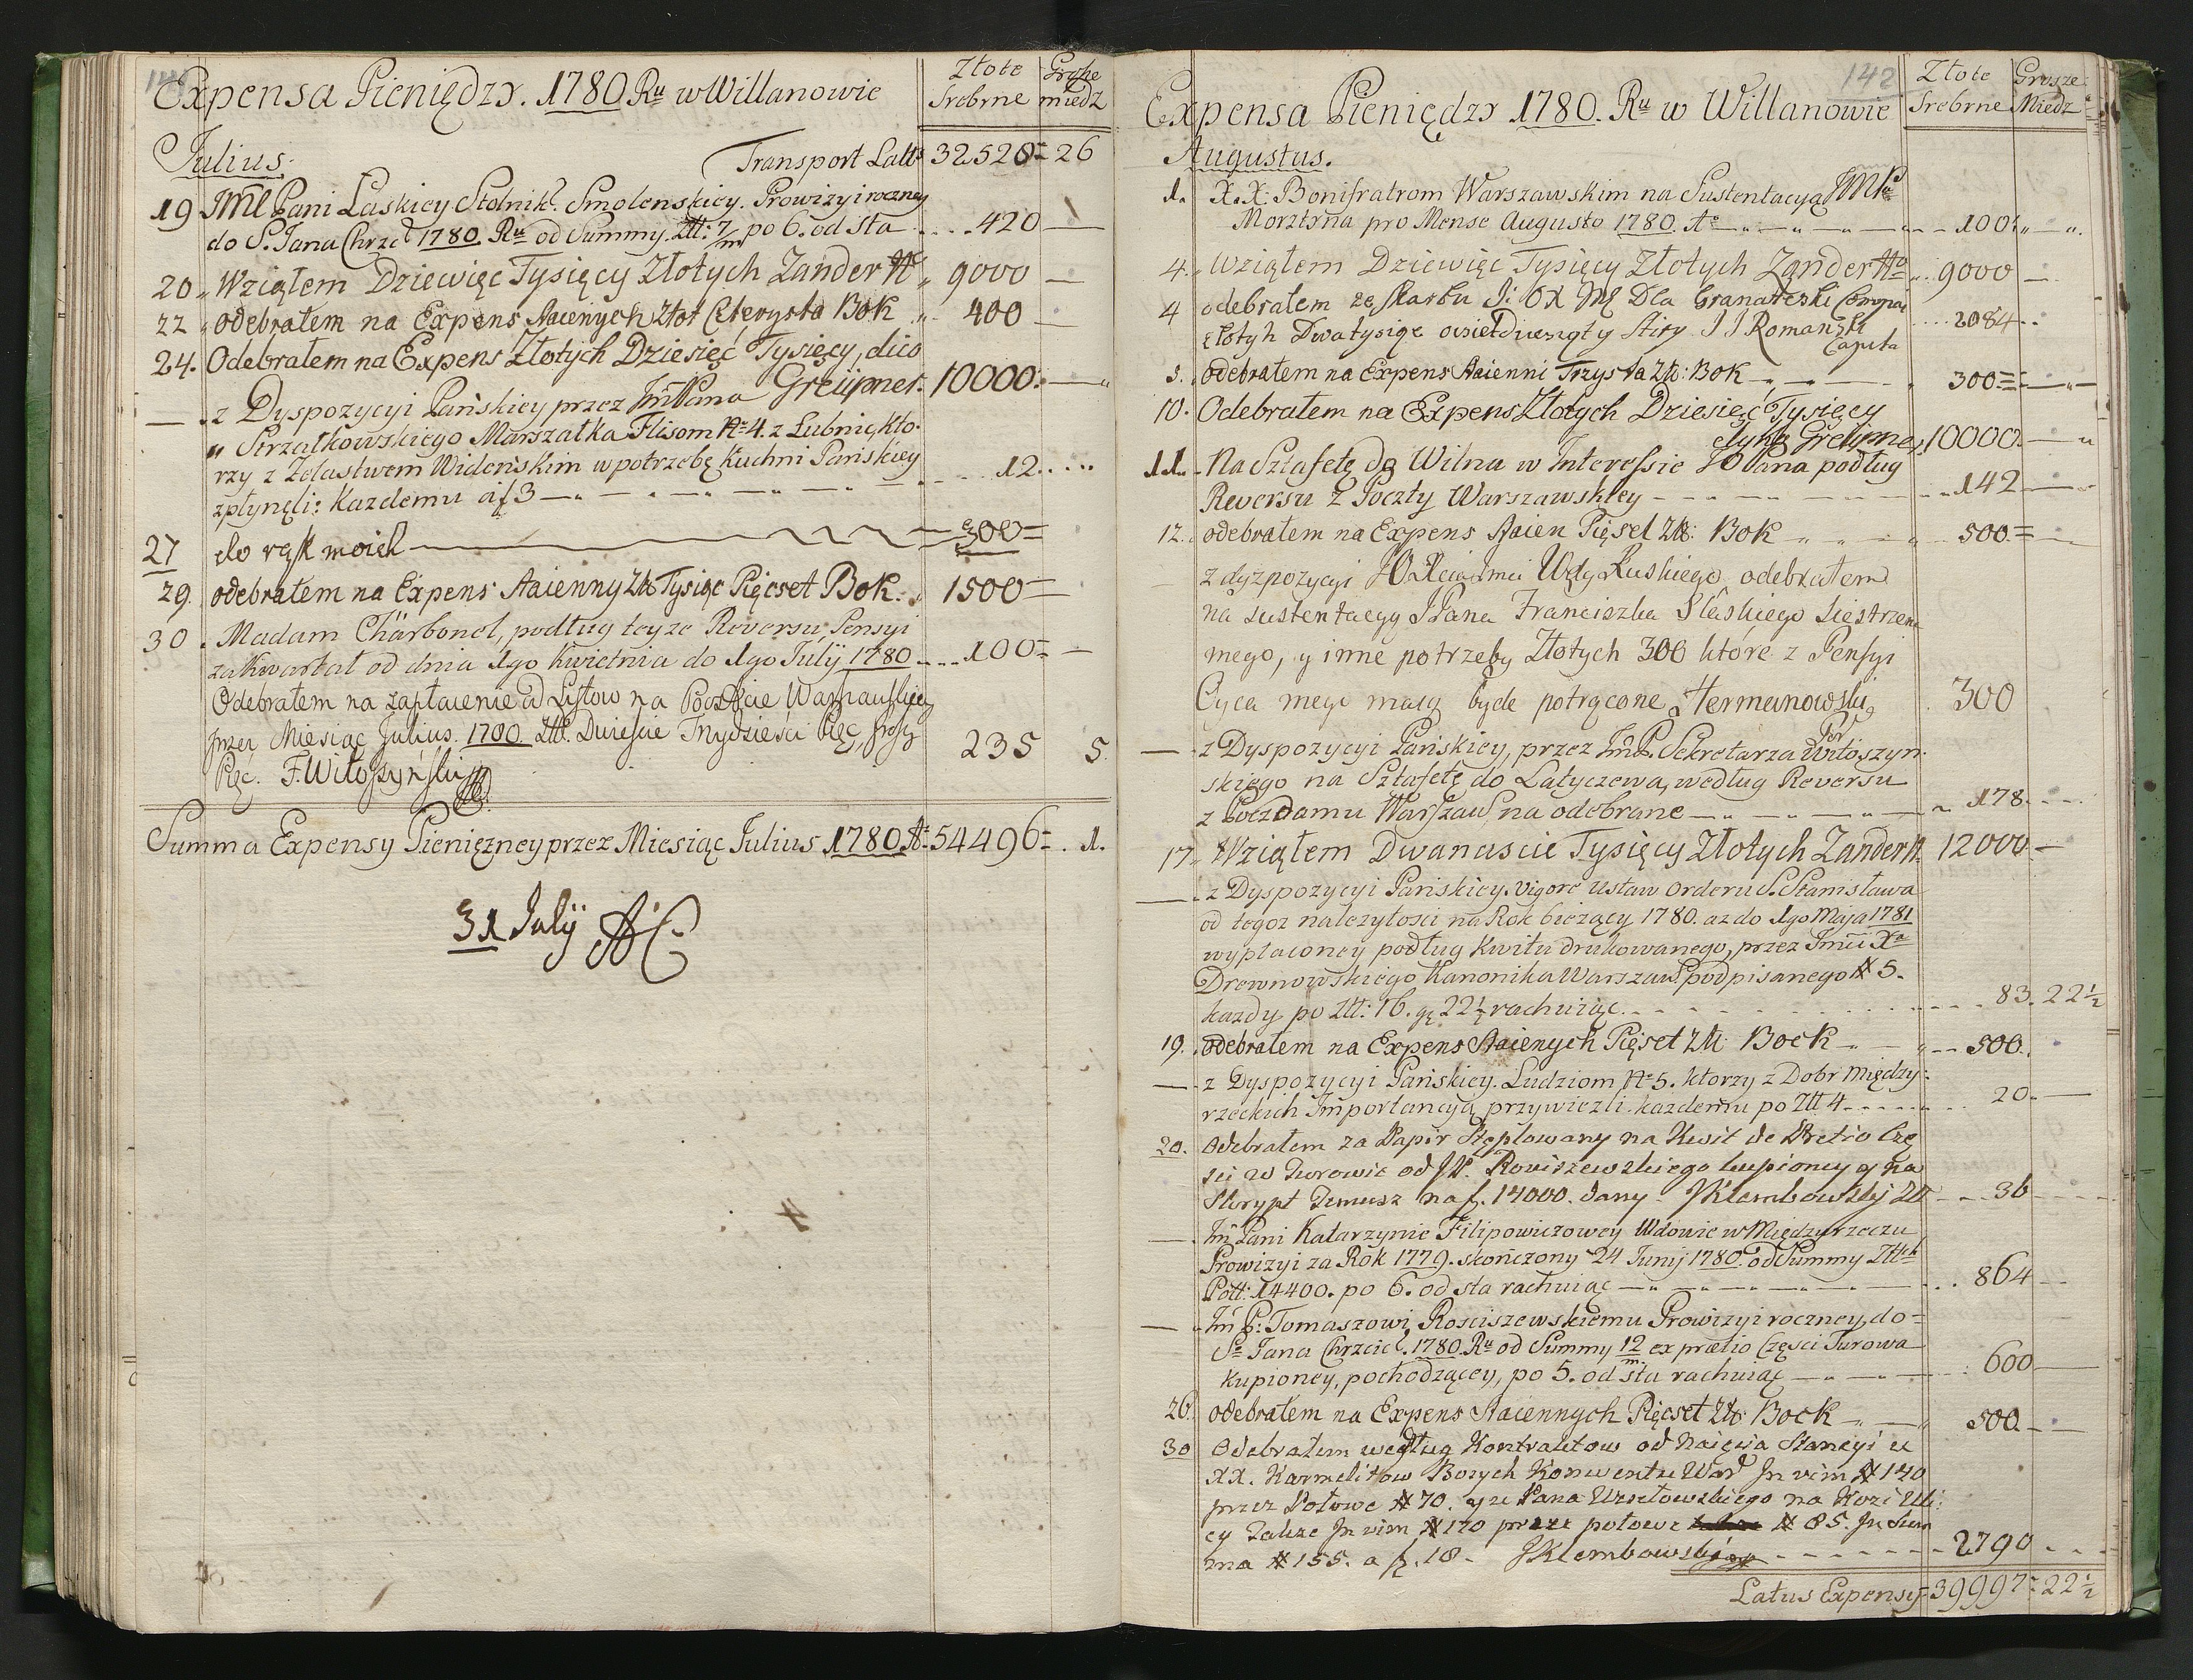 Expensa Pieniędzy. 1780 Ru w Willanowie Złote Srebrne Grosze miedz
Julius. Transport Latis 32520 = 26
19 JMC Pani Łaskiey Stolnik. Smolenskiey. Prowizyi roczney
do S. Jana Chrzc 1780 Ru od Summy Złł: 7/m po 6. od sta .... 420 —
20 „ Wziąłem Dziewięc Tysięcy Złotych Zander „ 9000 —
22 „ odebrałem na Expens Staienych Złot Czterysta Bok „ 400 —
24. Odebrałem na Expens Złotych Dziesięć Tysięcy, dico
Greüpner. 10000. —
— . z Dyspozycyi Pańskiey przez Jm Pana
„ Strzałkowskiego Marszałka Flisom No 4. z Lubnic, kto-
rzy z Żelastwem Wideńskim w potrzebę Kuchni Pańskiey
zpłynęli: kazdemu a f 3 — „ — „ — „ — 12 ....
27 do ręk moich — 300 =
29. odebrałem na Expens Staienny Złł Tysiąc Pięcset Bok. „ 1500 =
30 . Madam Chärbonel, podług teyze Reversu, Pensyi
za Kwartał od dnia 1go Kwietnia do 1go Julÿ 1780 .... 100 = —
Odebrałem na zapłacenie od Listow na Poczcie Warszawskiey
przez Miesiąc Julius. 1780. Złł. Dwieście Trzydzieści Pięć, groszy
Pięć. F. Witoszyński 235 5
Summa Expensy Pieniężney przez Miesiąc Julius 1780 Ao 54496 = . 1.
31 Julÿ
142
Expensa Pieniędzy 1780. Ru w Willanowie Złote Srebrne Grosze Miedz
Augustus.
1. X. X: Bonifratrom Warszawskim na Sustentacyą JMP
Morztyna pro Mense Augusto 1780. Ao — „ — „ — 100 „ — „
4. „ Wziąłem Dziewięc Tysięcy Złotych Zander „ 9000 —
4 odebrałem ze Skarbu J: OX Dla Granaterski Compa
złotyh Dwatysiąc osiemDziesąty Sztiry J J Romanzki 2084 ..
Capita
5. odebrałem na Expens Staienni Trzysta Złł: Bok — „ — 300 =
10. Odebrałem na Expens Złotych Dziesięć Tysięcy
Greüpner, 10000. — „
11. . Na Sztafetę do Wilna w Interessie JO Pana podług
Reversu z Poczty Warszawskiey - - - — 142 —
12. odebrałem na Expens Staien Pięset Złł: Bok „ „ 500. =
— z dyzpozycyi JO Xcia Jmci Wdy Ruskiego odebrałem
na sustentacyą JPana Franciszka Slaskiego siestrzena
mego, y inne potrzeby Złotych 300 które z Pensyi
Oyca mego maią bydz potrącone Hermanowski 300
— . z Dyspozycyi Pańskiey, przez JmP. Sekretarza Witoszyn-
skiego na Sztafetę do Latyczewa, według Reversu
z Pocztamu Warszaw. na odebrane — „ — „ — 178. ...
17. Wziąłem Dwanascie Tysięcy Złotych Zander 12000 —
— . z Dyspozycyi Pańskiey. vigore ustaw Orderu S. Stanisława
od tegoz nalezytosci na Rok bieżący 1780. az do 1go Maja 1781
wypłaconey podług Kwitu drukowanego, przez Jmci Xa
Drewnowskiego Kanonika Warszaw. podpisanego # 5.
kazdy po Złł: 16. gr 22½ rachuiąc. 83. 22½
19. . odebrałem na Expens Staienych Pięset Złł Bock — „ 500.
— . z Dyspozycyi Pańskiey. Ludziom No 5. ktorzy z Dobr Między-
rzeckich Importancyą przywiezli. kazdemu po Złł 4 ...... 20. —
20. Odebrałem za Papir Stęplowany na Kwit de Pretio Czę
sci w Turowie od JP. Rosiszewskiego kupioney y na
Skrypt Temusz na f. 14000. dany - JKlembowskj 36
— . Jm Pani Katarzynie Filipowiczowey Wdowie w Międzyrzeczu
Prowizyi za Rok 1779. skończony 24 Junÿ 1780. od Summy Złłch
Poll: 14400. po 6. od sta rachuiąc — „ — „ — „ — 864 —
— „ Jm P: Tomaszowi Rosciszewskiemu Prowizyi roczney, do-
So Jana Chrzcic. 1780. Ru od Summy 12/m ex prætio Częsci Turowa
kupioney, pochodzącey, po 5. od sta rachuiąc — „ — 600 —
26. odebrałem na Expens Staiennych Pięcset Złł: Bock — „ 500. —
30 Odebrałem według Kontraktow od Naięcia Stancyi u
XX. Karmelitow Bosych Konwentu War In vim # 140
przez Połowe # 70. y ze Pana Uzełowskiego na Kozi Uli:
cy Także In vim # 170 przez połowe # 85. In Sum
ma # 155. a f. 18. JKlembowski - - - - - 2790 ...
Latus Expensy = 39997 = 22½